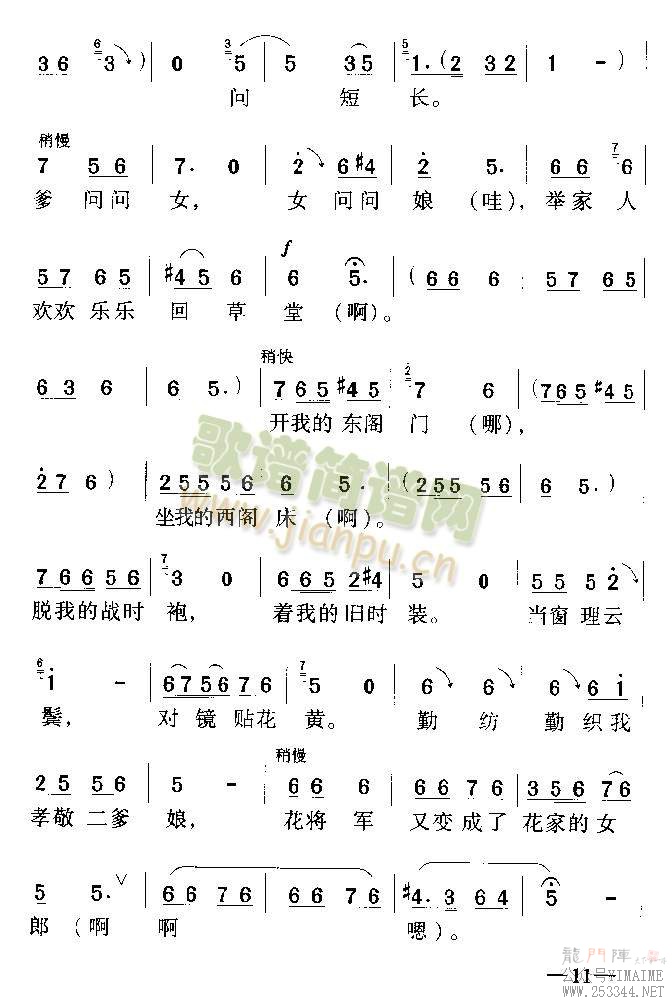 36 3 ) | 0 5 | 5 35 | 1. (2 32 | 1 - ) |
问 短 长。
稍慢
7 56 | 7. 0 | 2 6#4 | 2 5. | 66 6 |
爹 问问 女， 女 问问 娘 (哇)，举家 人
57 65 | #45 6 | 6 5. | (66 6 | 57 65 |
欢欢 乐乐 回 草 堂 (啊)。
稍快
636 6 | 6 5.) | 765 #45 | 7 6 | (765 #45 |
开我的 东阁 门 (哪)，
276 6 ) | 25556 | 6 5. | (255 56 | 6 5.) |
坐我的西阁 床 (啊)。
766 56 | 3 0 | 665 2#4 | 5 0 | 55 52 |
脱我的战时 袍， 着我的旧时 装。 当窗 理云
1 - | 675676 | 5 0 | 6 6 | 6 6i |
鬓， 对 镜 贴花 黄。 勤 纺 勤 织我
25 56 | 5 - | 66 6 | 66 76 | 356 76 |
孝敬 二爹 娘， 花将 军 又变 成了 花家的 女
稍慢
5 5. ∨ | 66 76 | 66 76 | #4. 3 64 | 5 - |
郎 (啊 啊 嗯)。
歌谱简谱网
www.jianpu.cn
龍門陣
公众号YIMAIME
—11—
www.253344.NET